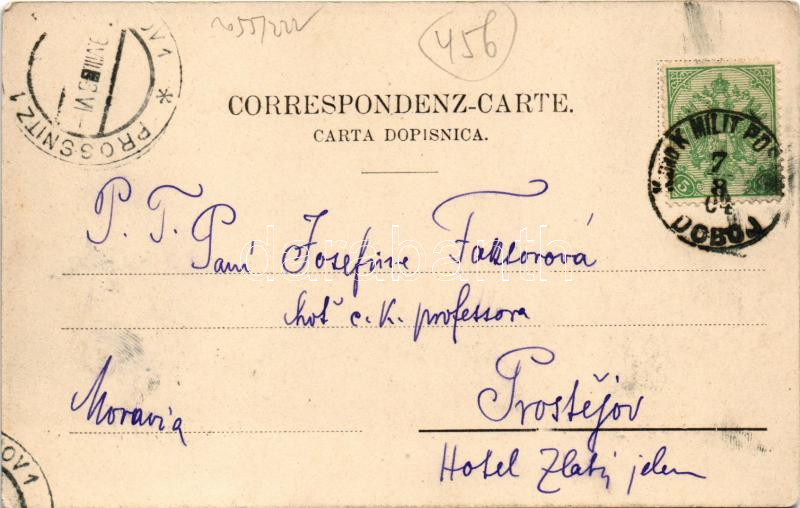 456
CORRESPONDENZ-CARTE.
CARTA DOPISNICA.
OV 1 * PROSSNITZ 1
K. UND K. MILIT. POST
7
8
04
DOBOJ
5
P. T.
Paní Josefine Faktorová
choť c. k. professora
Moravia
Prostějov
Hotel Zlatý jelen
OV 1
darabanth